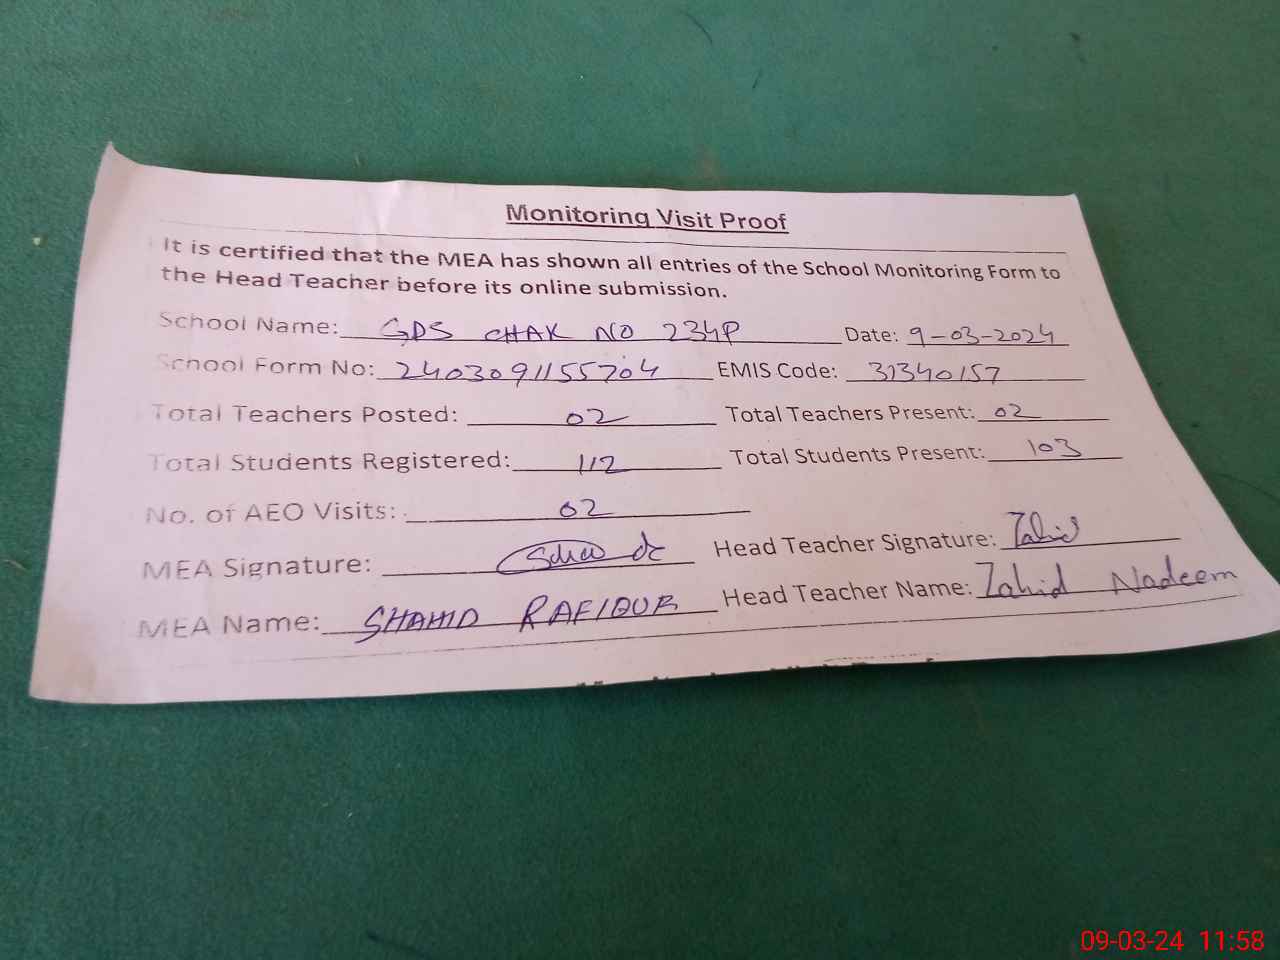 Monitoring Visit Proof
It is certified that the MEA has shown all entries of the School Monitoring Form to
the Head Teacher before its online submission.
School Name: GDS CHAK NO 234P Date: 9-03-2024
School Form No: 2403091155704 EMIS Code: 31340157
Total Teachers Posted: 02 Total Teachers Present: 02
Total Students Registered: 112 Total Students Present: 103
No. of AEO Visits: 02
MEA Signature: Head Teacher Signature: Zahid
MEA Name: SHAHID RAFIQUR Head Teacher Name: Zahid Nadeem
09-03-24 11:58